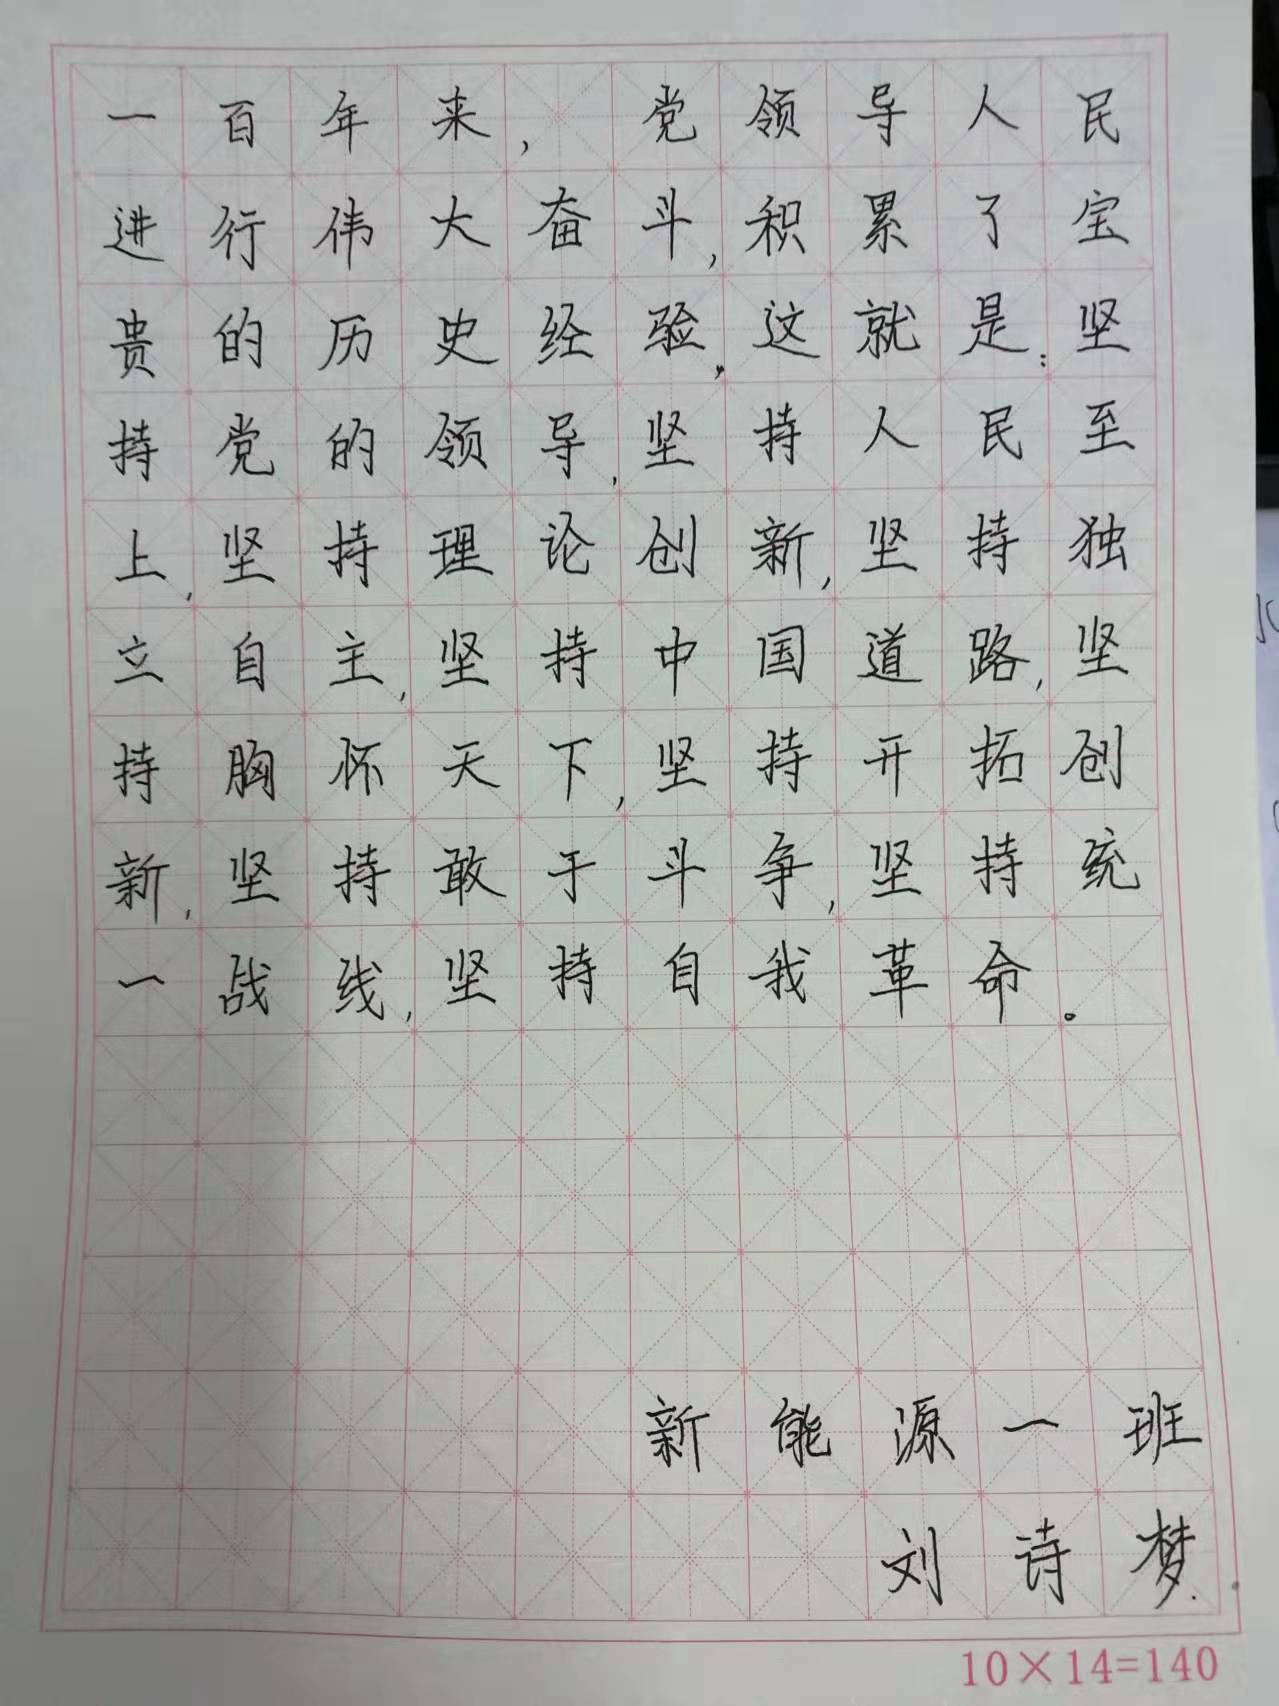 一百年来，党领导人民
进行伟大奋斗，积累了宝
贵的历史经验，这就是：坚
持党的领导，坚持人民至
上，坚持理论创新，坚持独
立自主，坚持中国道路，坚
持胸怀天下，坚持开拓创
新，坚持敢于斗争，坚持统
一战线，坚持自我革命。
新能源一班
刘诗梦.
10×14=140